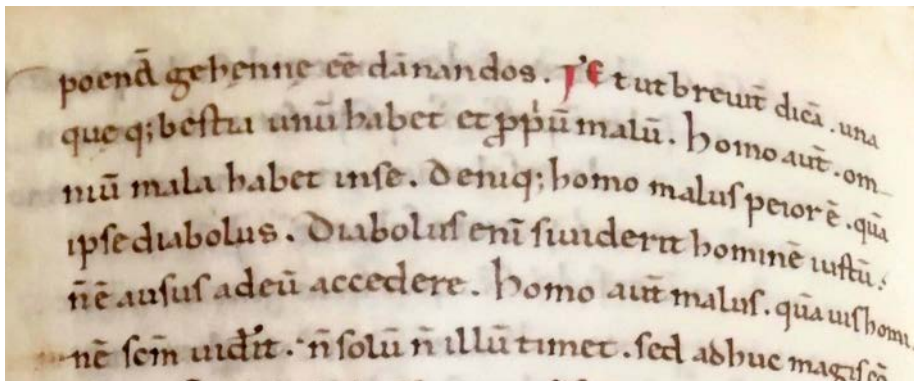 poenā gehennę eē dānandos. Et ut breuit̄ dicā. una
que q; bestia unū habet et p̄pⁱū malū. homo aut̄. om
niū mala habet inse. Deniq; homo malus peior ē. quā
ipse diabolus. Diabolus enī si uiderit hominē iustū.
n̄ ē ausus ad eū accedere. homo aut̄ malus. quā uis homi
nē scm̄ uiderit. n̄ solū n̄ illū timet. sed adhuc magis eū